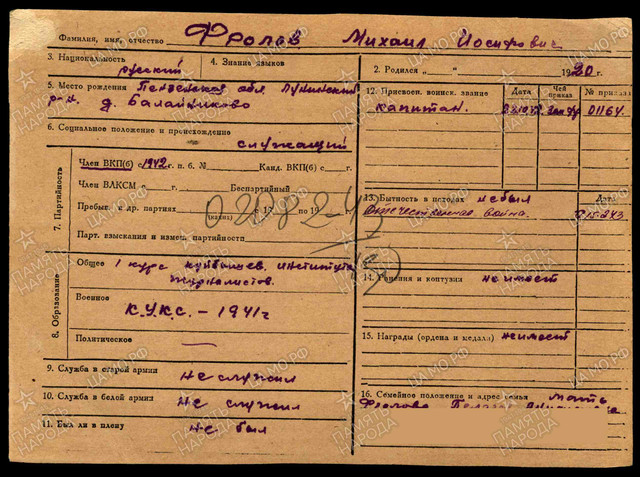 Фамилия, имя, отчество Фролов Михаил Иосифович
3. Национальность русский
4. Знание языков
2. Родился „ “ 1920 г.
5. Место рождения Пензенская обл. Лунинский
р-н. д. Балайниково
6. Социальное положение и происхождение
служащий
7. Партийность
Член ВКП(б) с 1942 г. п. б. № Канд. ВКП(б) с г.
Член ВЛКСМ г. Беспартийный
Пребыв. в др. партиях (каких) с 19 по 19 г.
02082-43
Парт. взыскания и измен. партийности
8. Образование
Общее 1 курс куйбышев. института
журналистов.
Военное К.У.К.С. – 1941 г
Политическое —
9. Служба в старой армии не служил
10. Служба в белой армии не служил
11. Был ли в плену не был
12. Присвоен. воинск. звание Дата Чей приказ № приказа
капитан. 0116
13. Бытность в походах не был Дата
Отечественная война.
14. Ранения и контузии не имеет
15. Награды (ордена и медали) не имеет
16. Семейное положение и адрес семьи мать
Фролова
ПАМЯТЬ НАРОДА
ЦАМО.РФ